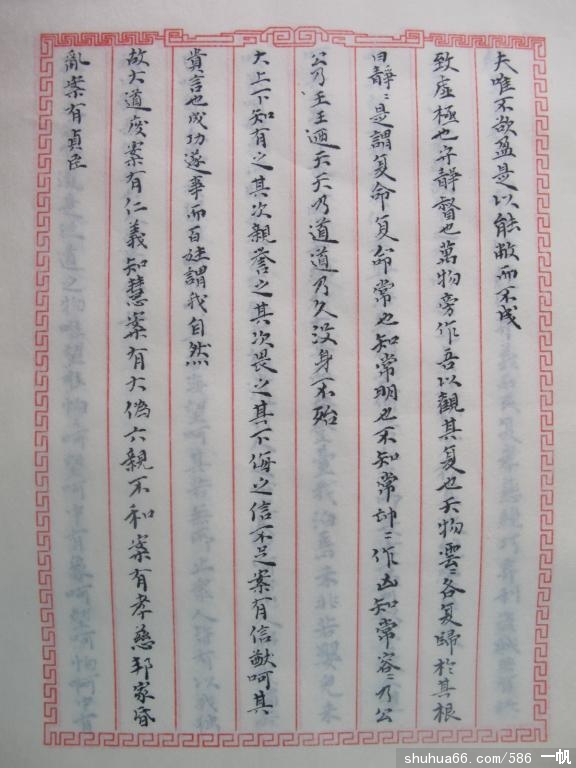 夫唯不欲盈是以能敝而不成
致虛極也守靜督也萬物旁作吾以觀其复也天物雲〻各复歸於其根
曰靜〻是謂复命复命常也知常明也不知常㠵〻作凶知常容〻乃公
公乃王王迺天天乃道道乃久沒身不殆
大上下知有之其次親譽之其次畏之其下侮之信不足案有信猷呵其
貴言也成功遂事而百姓謂我自然
故大道废案有仁義知慧案有大偽六親不和案有孝慈邦家昏
亂案有貞臣
shuhua66.com/586 一帆